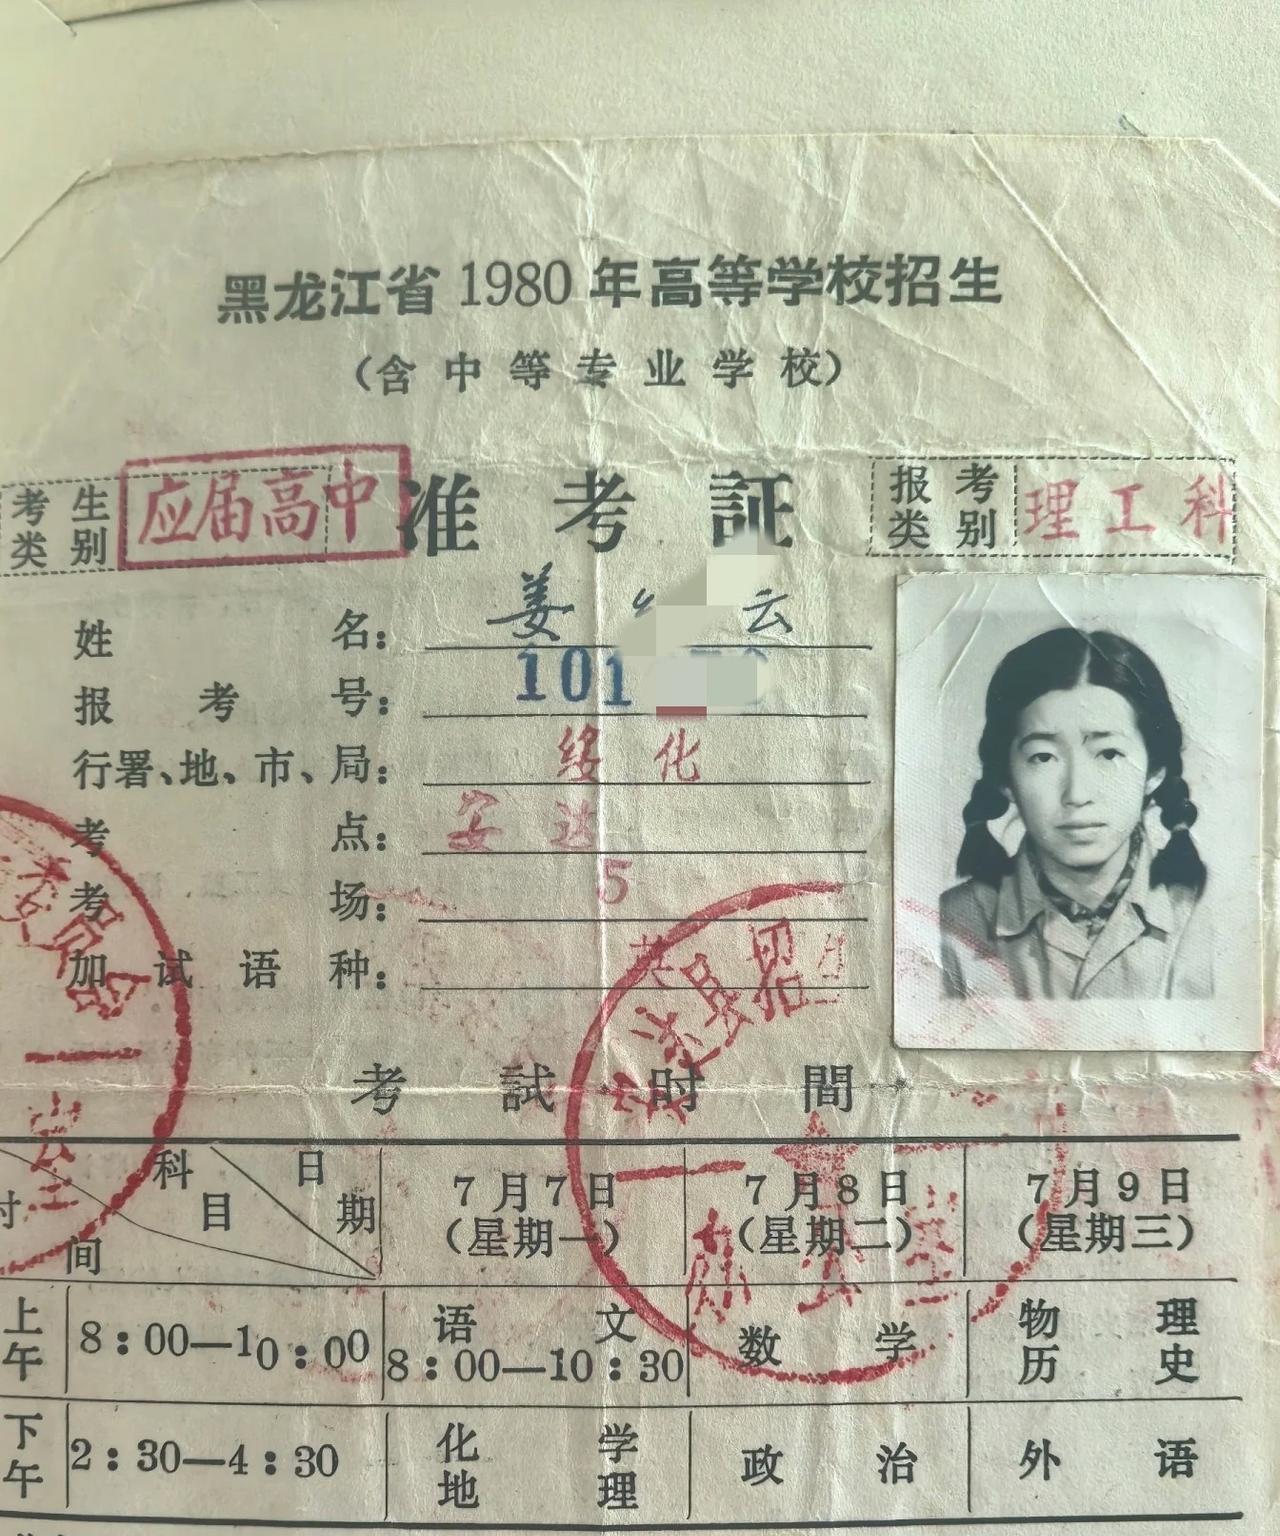 黑龙江省 1980 年高等学校招生
（含中等专业学校）
考生类别 应届高中
准考証
报考类别 理工科
姓名： 姜 云
报考号： 101
行署、地、市、局： 绥化
考点： 安达
考场： 5
加试语种：
考試时間
科目 日期 时间 7月7日（星期一） 7月8日（星期二） 7月9日（星期三）
上午 8：00—10：00 语文 8：00—10：30 数学 物理 历史
下午 2：30—4：30 化学 地理 政治 外语
县招生
办公室